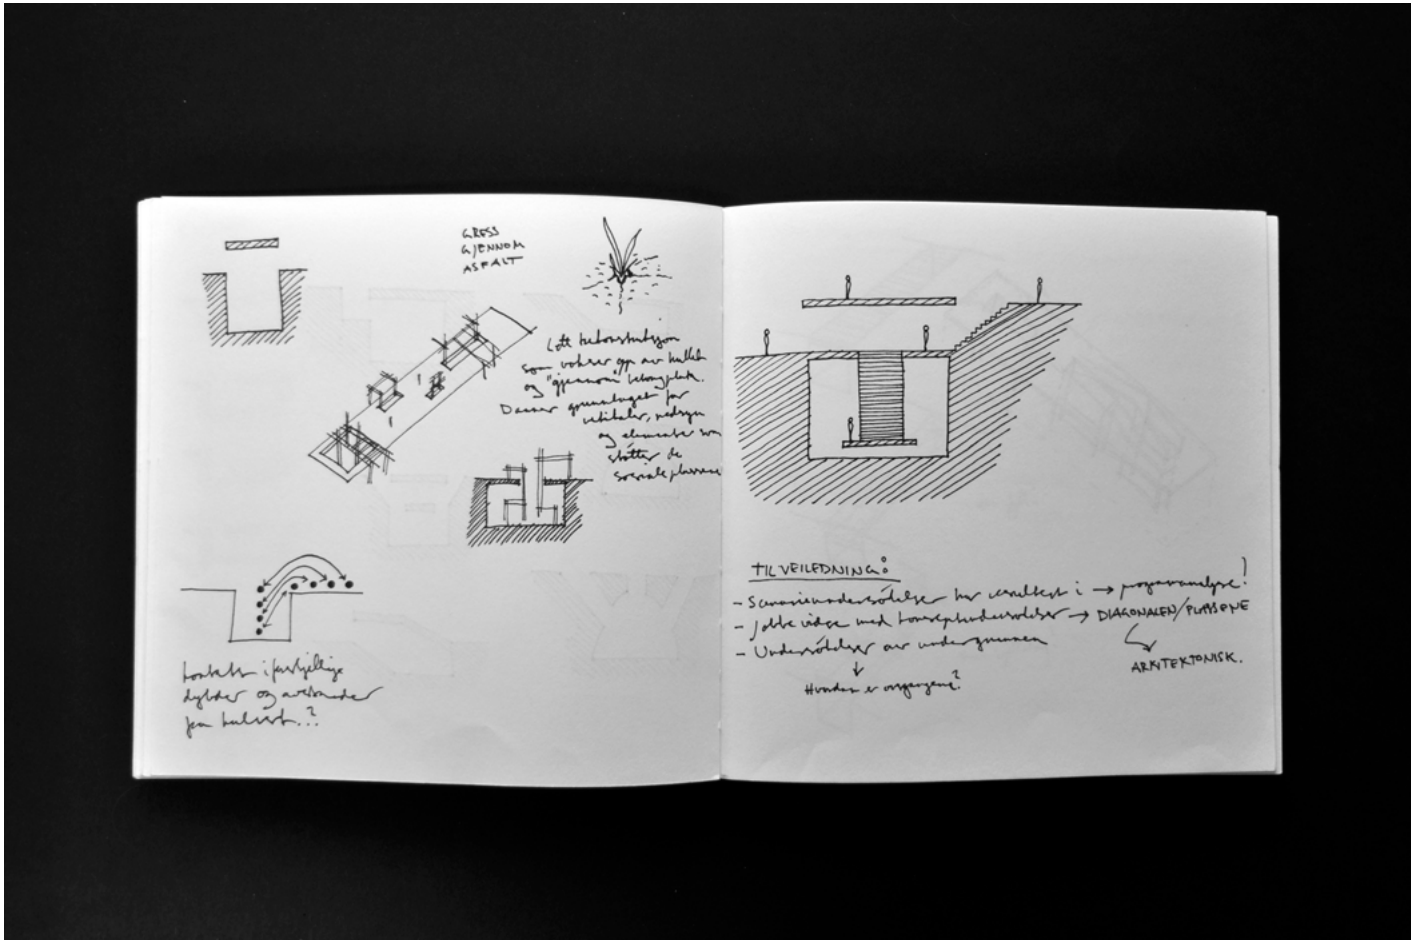 GRESS
GJENNOM
ASFALT
Lett trekonstruksjon
som vokser opp av hullet
og "gjennom" betongplate.
Danner grunnlaget for
vertikaler, nedsyn
og elementer som
støtter de
sosiale plassene
Kontakt i forskjellige
dybder og avstander
fra kulvert..?
TIL VEILEDNING:
- Scenarieundersökelser har resultert i → programanalyse!
- Jobbe vidre med konseptundersökelser → DIAGONALEN/PLASSENE
ARKITEKTONISK.
- Undersökelser av undergrunnen
Hvordan er inngangene?